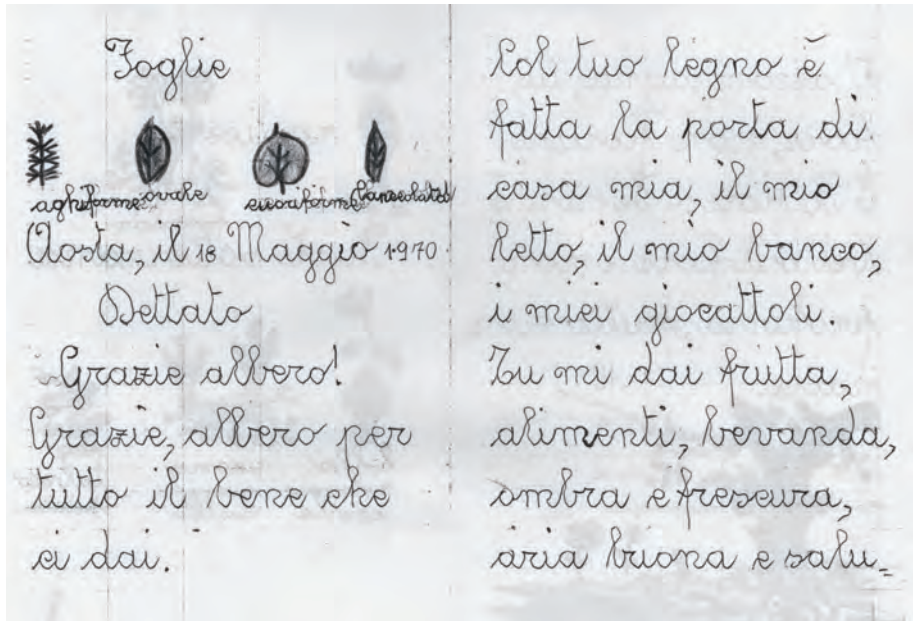 Foglie
aghiforme ovale cuoriforme lanceolata
Aosta, il 18 Maggio 1970.
Dettato
Grazie albero!
Grazie, albero per
tutto il bene che
ci dai.
Col tuo legno è
fatta la porta di
casa mia, il mio
letto, il mio banco,
i miei giocattoli.
Tu mi dai frutta,
alimenti, bevanda,
ombra e frescura,
aria buona e salu=